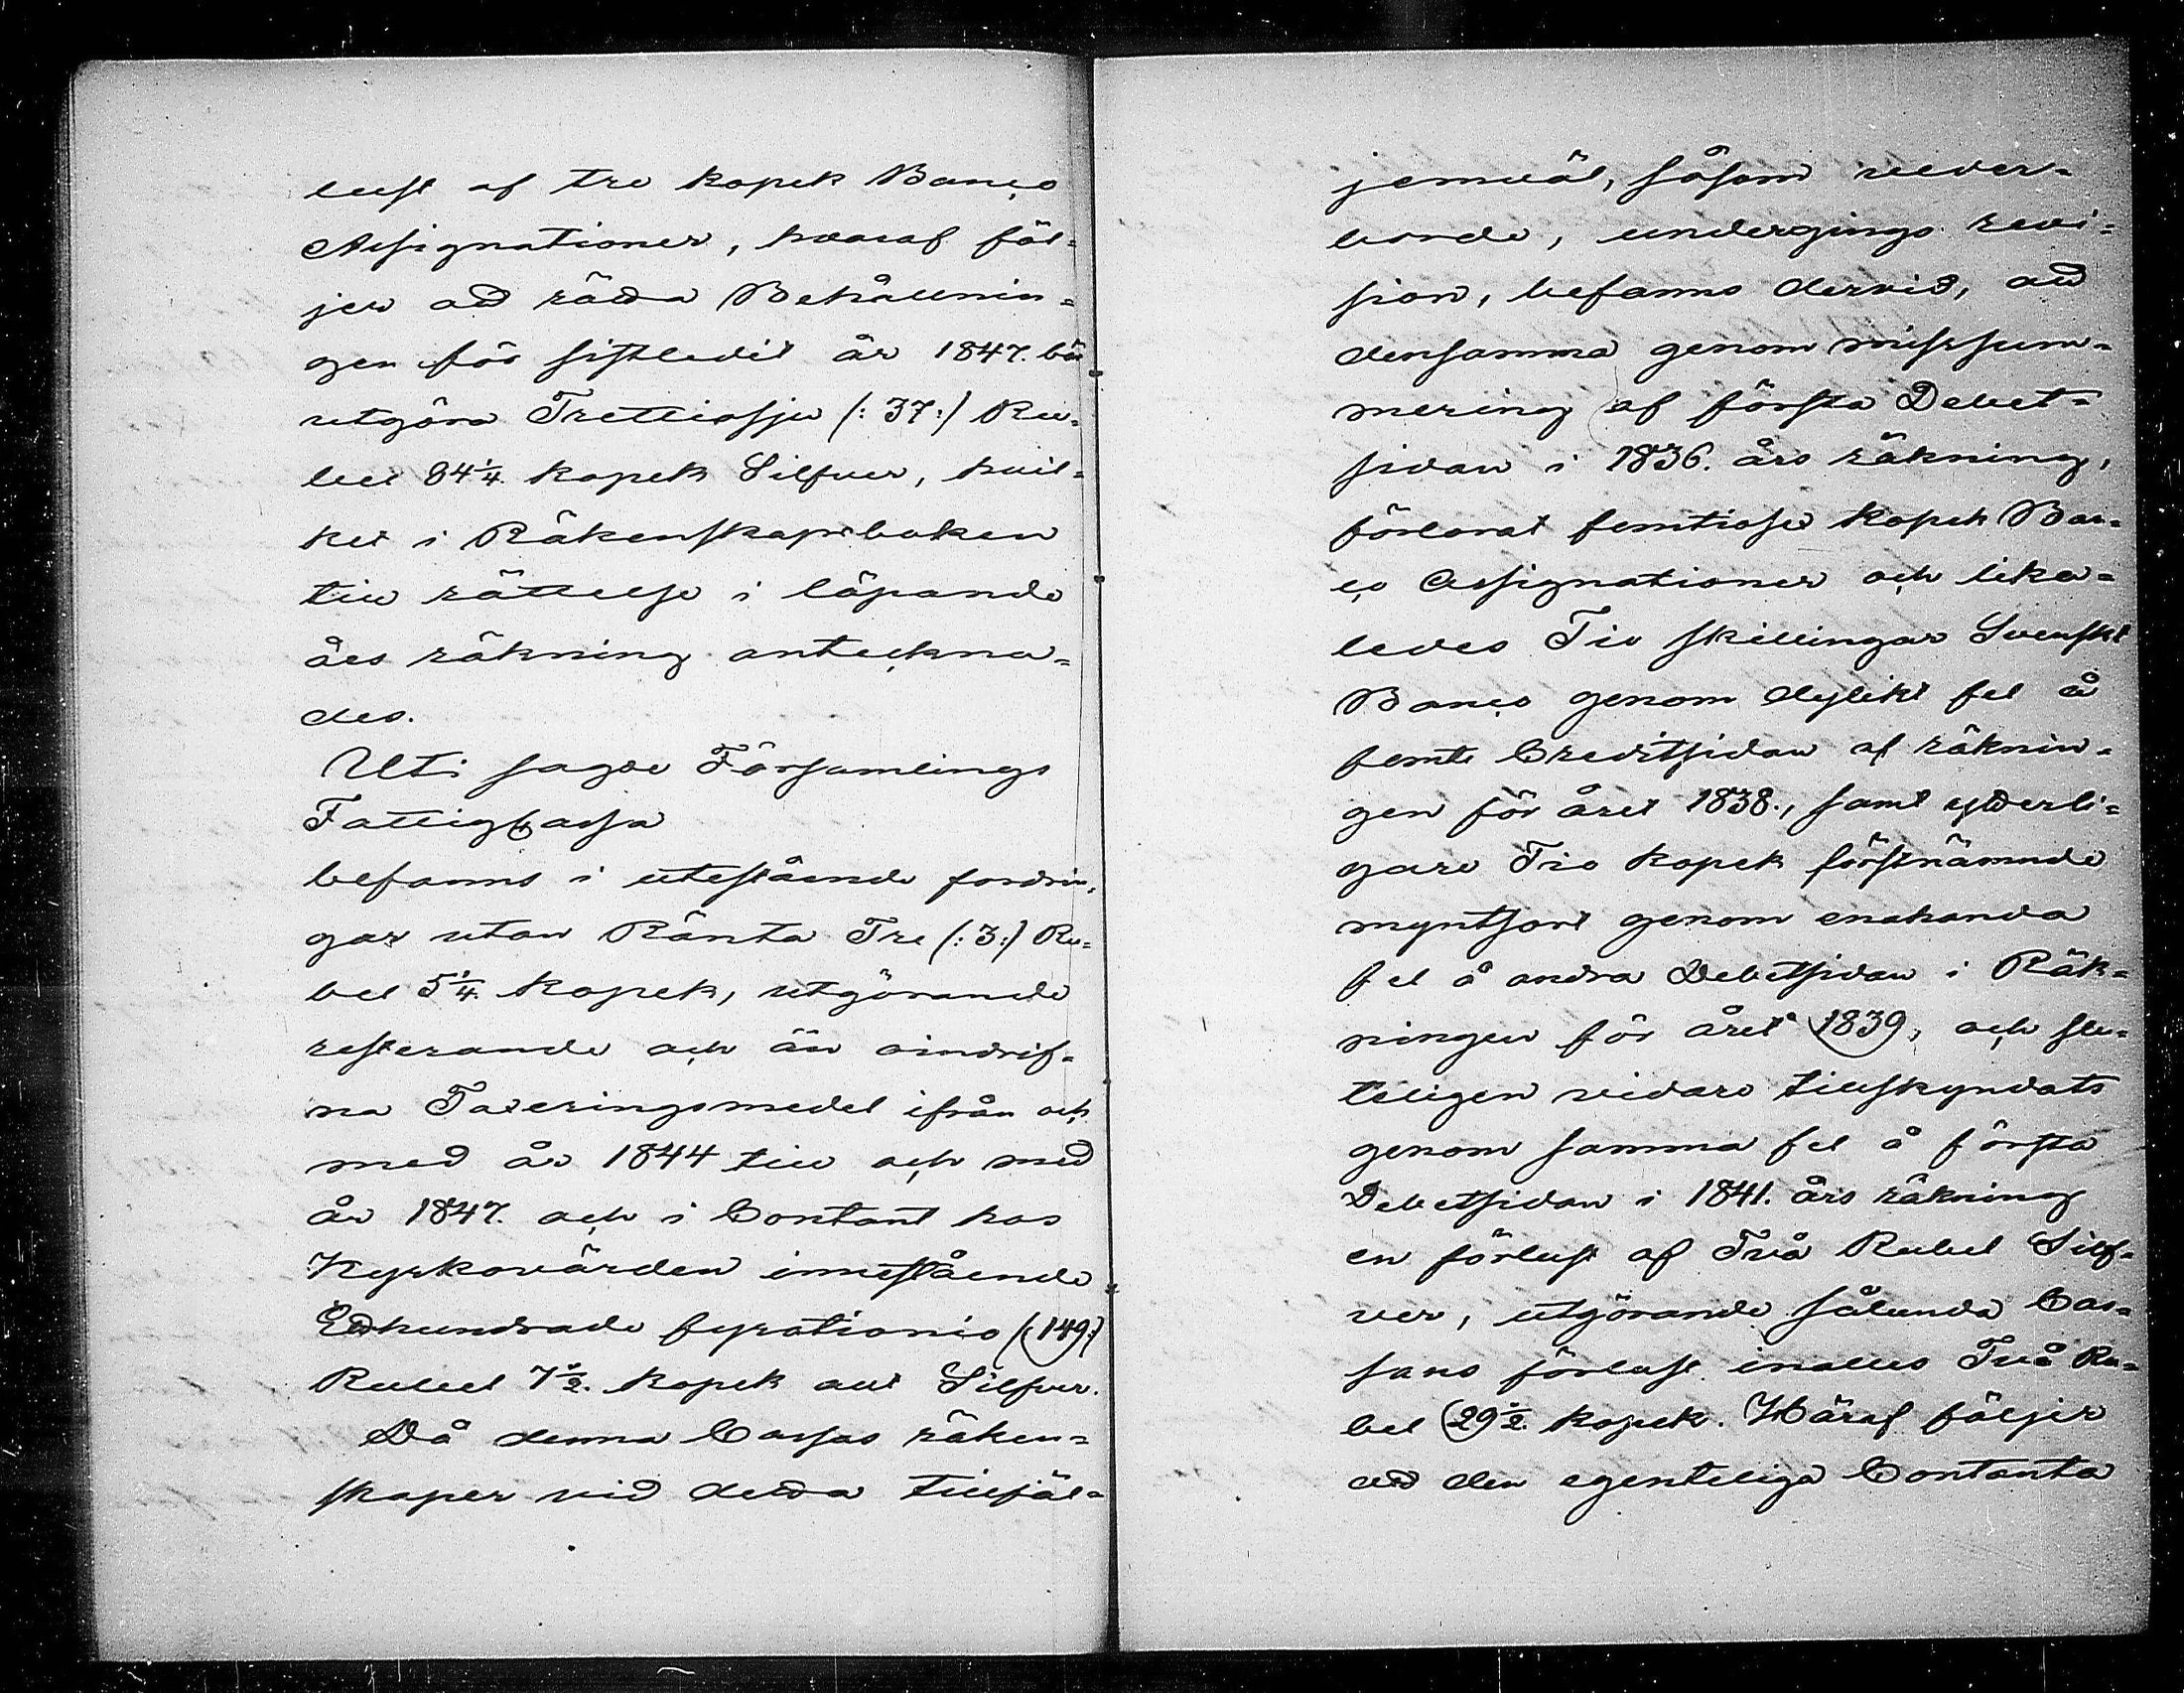 lust af tre kopek Banco
Assignationer, hvaraf föl=
jer att rätta Behållnin=
gen för sistledit år 1847. bör
utgöra Trettiosju (: 37:) Ru=
bel 84 1/4. kopek Silfver, hvil=
ket i Räkenskapsboken
till rättelse i löpande
års räkning anteckna=
des.
Uti sagde Församlings
FattigCassa
befanns i utestående fordrin=
gar utan Ränta Tre (: 3:) Ru=
bel 5 1/4. kopek, utgörande
resterande och än oindrif=
na Taxeringsmedel ifrån och
med år 1844 till och med
år 1847. och i Contant hos
Kyrkovärden innestående
Etthundrade fyrationio (: 149:)
Rubel 7 1/2. kopek allt Silfver.
Då denna Cassas räken=
skaper vid detta tillfäl=
jemväl, såsom veder=
borde, undergingo revi=
sion, befanns dervid, att
densamma genom missum=
mering af första Debet=
sidan i 1836. års räkning,
förlorat femtiosex kopek Ban=
co Assignationer och lika=
ledes Tio skillingar Svenskt
Banco genom dylikt fel å
femte Creditsidan af räknin=
gen för året 1838., samt ytterli=
gare Tio kopek förstnämnde
myntsort genom enahanda
fel å andra Debetsidan i Räk=
ningen för året 1839, och slu=
teligen vidare tillskyndats
genom samma fel å första
Debetsidan i 1841. års räkning
en förlust af Två Rubel Silf=
ver, utgörande sålunda Cas=
sans förlust inalles Två Ru=
bel 29 1/2. kopek. Häraf följer
att den egenteliga Contanta